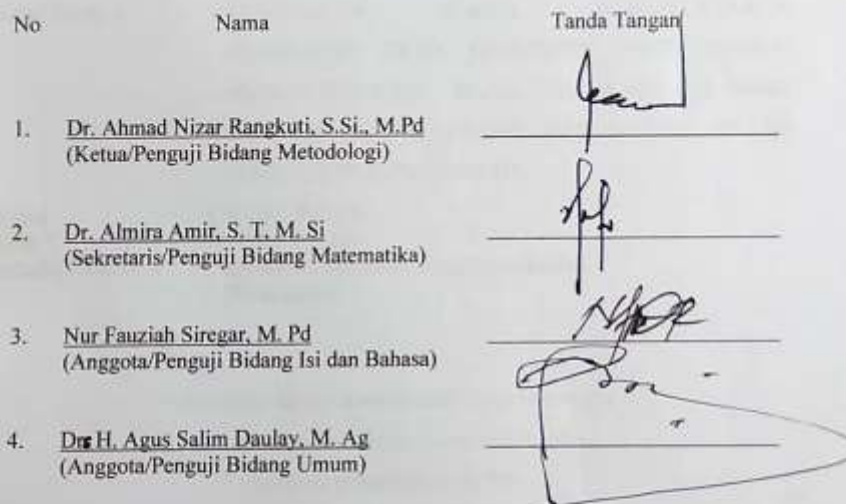 No Nama Tanda Tangan
1. Dr. Ahmad Nizar Rangkuti, S.Si., M.Pd
(Ketua/Penguji Bidang Metodologi)
2. Dr. Almira Amir, S. T, M. Si
(Sekretaris/Penguji Bidang Matematika)
3. Nur Fauziah Siregar, M. Pd
(Anggota/Penguji Bidang Isi dan Bahasa)
4. Drs H. Agus Salim Daulay, M. Ag
(Anggota/Penguji Bidang Umum)